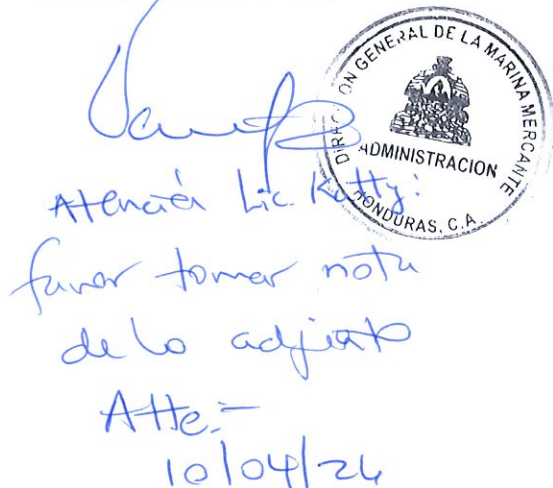 DIRECCION GENERAL DE LA MARINA MERCANTE
ADMINISTRACION
HONDURAS, C.A.
Atención Lic. Kitty:
favor tomar nota
de lo adjunto
Atte.-
10/04/24